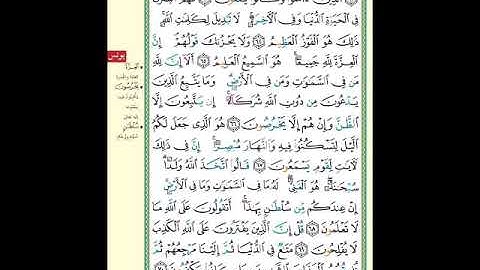 ٱلَّذِينَ ءَامَنُوا۟ وَكَانُوا۟ يَتَّقُونَ ﴿٦٣﴾ لَهُمُ ٱلْبُشْرَىٰ
فِى ٱلْحَيَوٰةِ ٱلدُّنْيَا وَفِى ٱلْءَاخِرَةِ ۚ لَا تَبْدِيلَ لِكَلِمَـٰتِ ٱللَّهِ ۚ
ذَٰلِكَ هُوَ ٱلْفَوْزُ ٱلْعَظِيمُ ﴿٦٤﴾ وَلَا يَحْزُنكَ قَوْلُهُمْ ۘ إِنَّ
ٱلْعِزَّةَ لِلَّهِ جَمِيعًا ۚ هُوَ ٱلسَّمِيعُ ٱلْعَلِيمُ ﴿٦٥﴾ أَلَآ إِنَّ لِلَّهِ
مَن فِى ٱلسَّمَـٰوَٰتِ وَمَن فِى ٱلْأَرْضِ ۗ وَمَا يَتَّبِعُ ٱلَّذِينَ
يَدْعُونَ مِن دُونِ ٱللَّهِ شُرَكَآءَ ۚ إِن يَتَّبِعُونَ إِلَّا
ٱلظَّنَّ وَإِنْ هُمْ إِلَّا يَخْرُصُونَ ﴿٦٦﴾ هُوَ ٱلَّذِى جَعَلَ لَكُمُ
ٱلَّيْلَ لِتَسْكُنُوا۟ فِيهِ وَٱلنَّهَارَ مُبْصِرًا ۚ إِنَّ فِى ذَٰلِكَ
لَـَٔايَـٰتٍ لِّقَوْمٍ يَسْمَعُونَ ﴿٦٧﴾ قَالُوا۟ ٱتَّخَذَ ٱللَّهُ وَلَدًا ۗ
سُبْحَـٰنَهُۥ ۖ هُوَ ٱلْغَنِىُّ ۖ لَهُۥ مَا فِى ٱلسَّمَـٰوَٰتِ وَمَا فِى ٱلْأَرْضِ ۚ
إِنْ عِندَكُم مِّن سُلْطَـٰنٍۭ بِهَـٰذَآ ۚ أَتَقُولُونَ عَلَى ٱللَّهِ مَا
لَا تَعْلَمُونَ ﴿٦٨﴾ قُلْ إِنَّ ٱلَّذِينَ يَفْتَرُونَ عَلَى ٱللَّهِ ٱلْكَذِبَ
لَا يُفْلِحُونَ ﴿٦٩﴾ مَتَـٰعٌ فِى ٱلدُّنْيَا ثُمَّ إِلَيْنَا مَرْجِعُهُمْ ثُمَّ
يونس
يَخْرُصُونَ
سُلْطَـٰنٍ